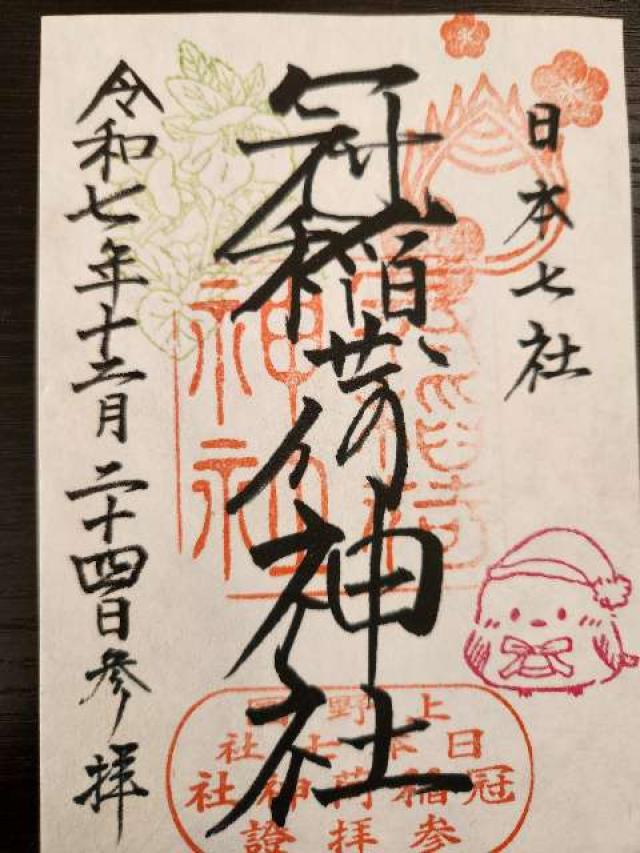 日本七社
冠稲荷神社
令和七年十二月二十四日参拝
上野國
日本七社
冠稲荷神社
参拝證